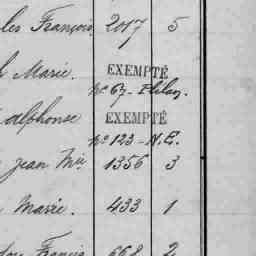 les François. 2017 5
Marie. EXEMPTÉ
No 67 -
alphonse EXEMPTÉ
No 123 - N.E.
Jean Mie 1356 3
Marie. 433 1
Francis 668 2